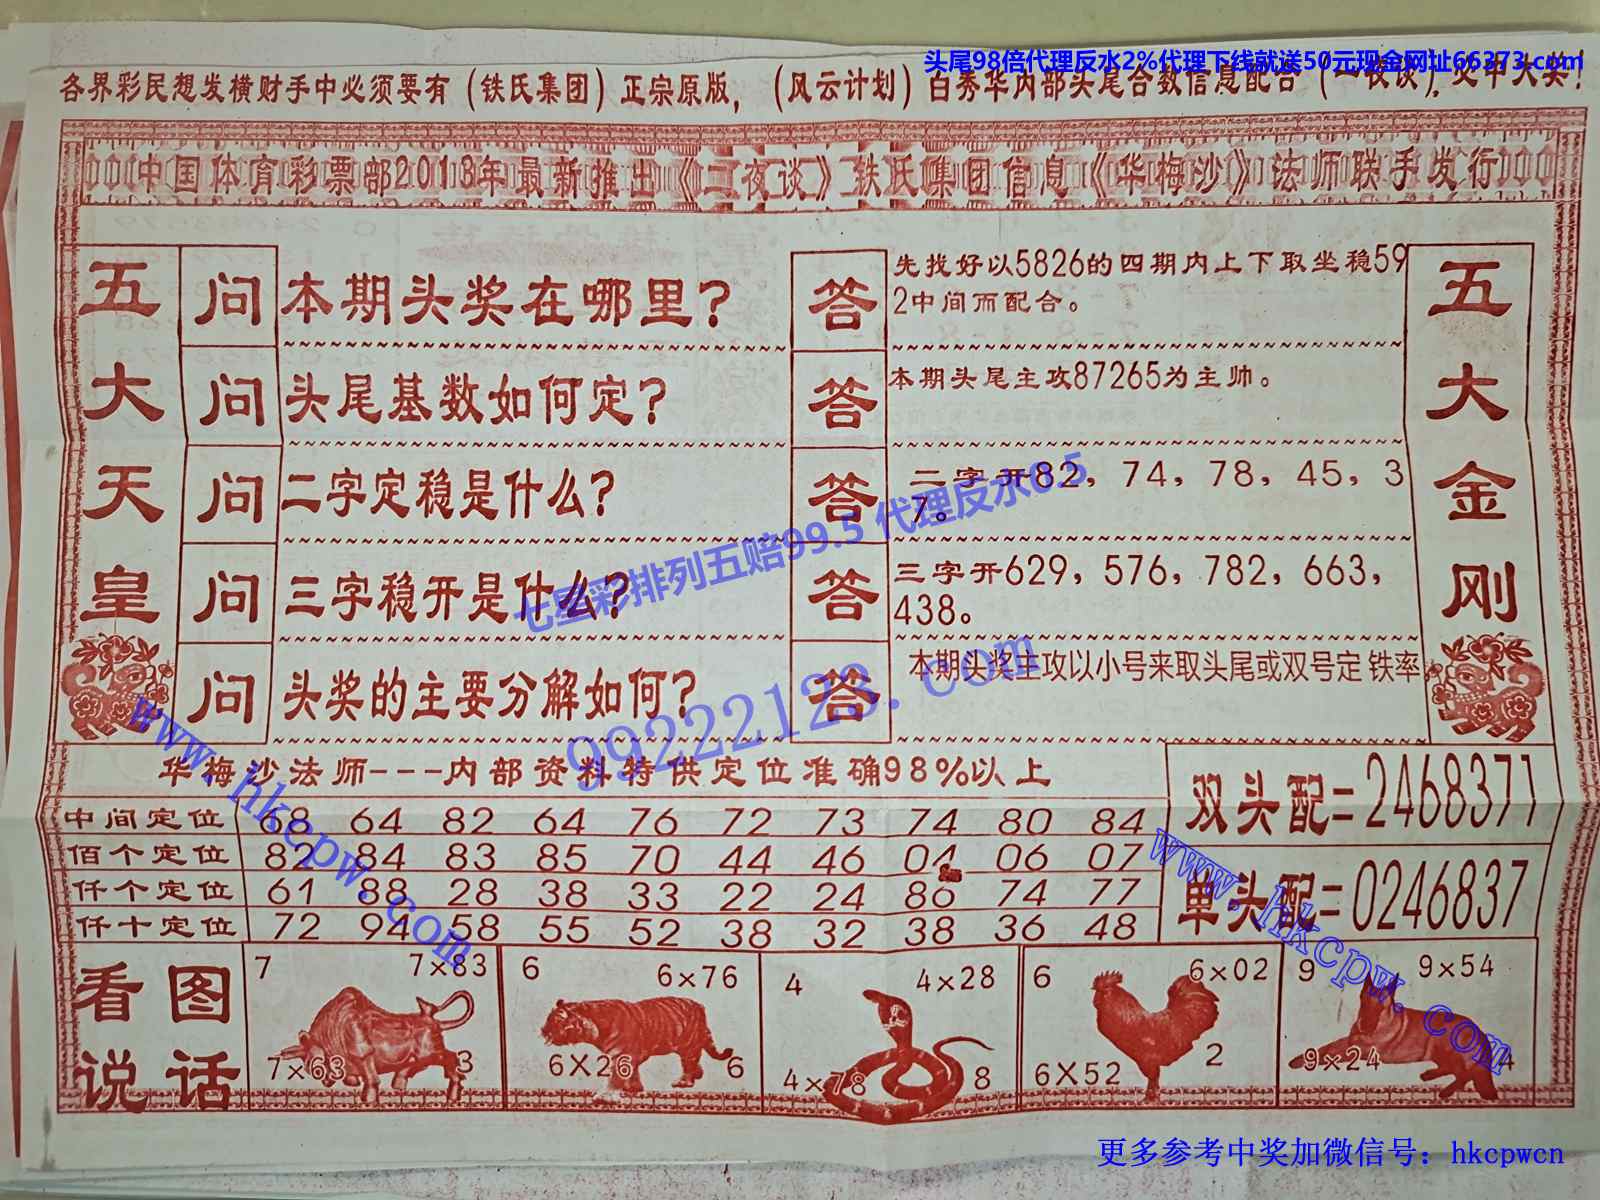 头尾98倍代理反水2%代理下线就送50元现金网址66373.com
各界彩民想发横财手中必须要有（铁氏集团）正宗原版，（风云计划）白秀华内部头尾合数信息配合（一夜谈），必中大奖！
中国体育彩票部2013年最新推出《一夜谈》铁氏集团信息《华梅沙》法师联手发行
五大天皇
问 本期头奖在哪里？ 答 先找好以5826的四期内上下取坐稳59
2中间而配合。
问 头尾基数如何定？ 答 本期头尾主攻87265为主帅。
问 二字定稳是什么？ 答 二字开82，74，78，45，3
7。
问 三字稳开是什么？ 答 三字开629，576，782，663，
438。
问 头奖的主要分解如何？ 答 本期头奖主攻以小号来取头尾或双号定 铁率
五大金刚
七星彩排列五赔99.5 代理反水6.5
99222123.com
www.hkcpw.com
www.hkcpw.com
华梅沙法师---内部资料特供定位准确98%以上
中间定位 68 64 82 64 76 72 73 74 80 84
佰个定位 82 84 83 85 70 44 46 04 06 07
仟个定位 61 88 28 38 33 22 24 86 74 77
仟十定位 72 94 58 55 52 38 32 38 36 48
双头配=2468371
单头配=0246837
看图
说话
7 7×83
7×63 3
6 6×76
6×26 6
4 4×28
4×78 8
6 6×02
6×52 2
9 9×54
9×24 4
更多参考中奖加微信号：hkcpwcn